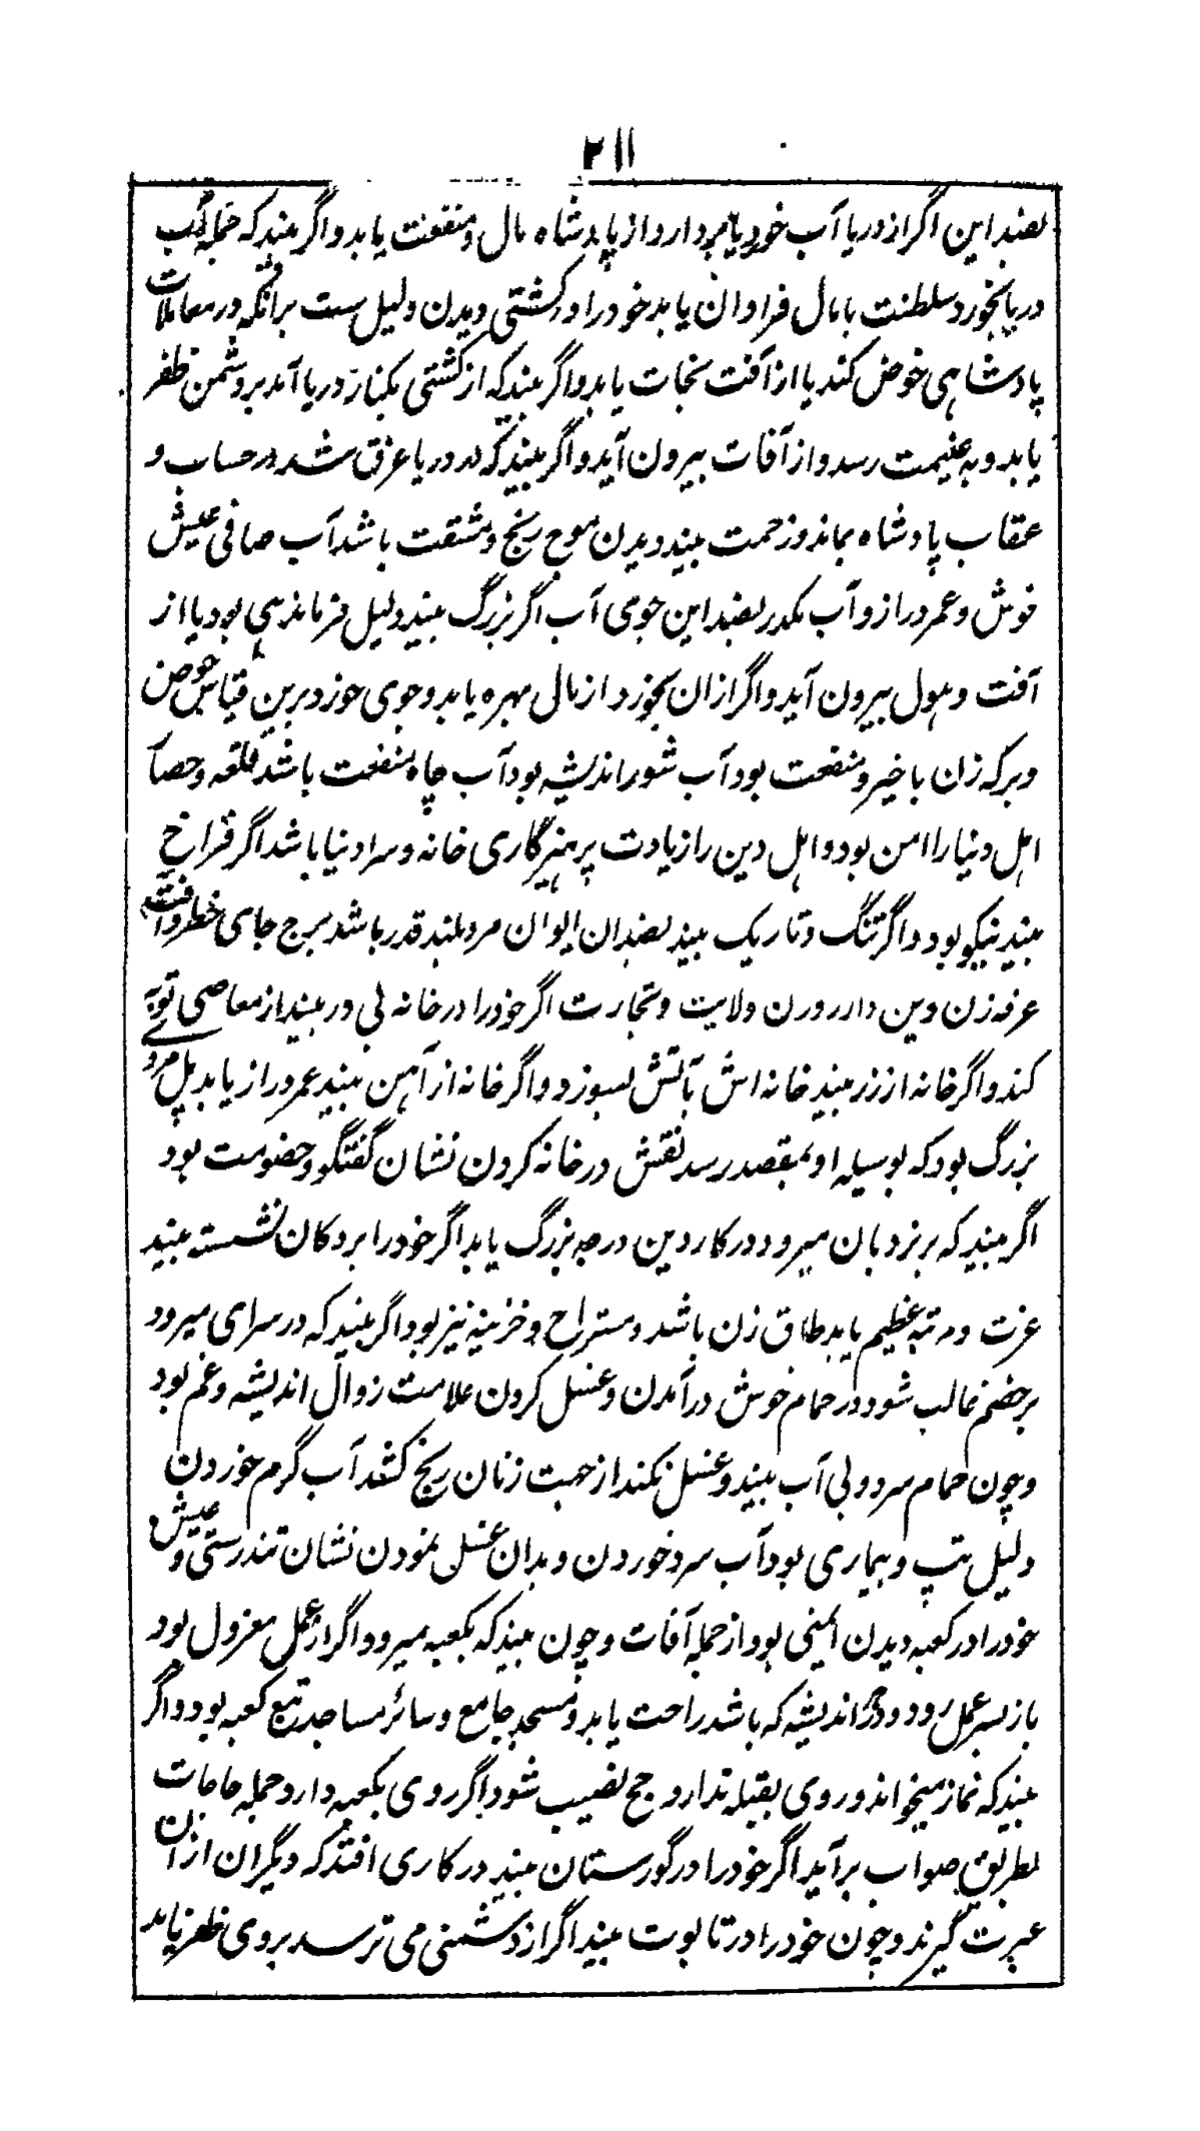 ۲۱۱
بضد این اگر از دریا آب خورد یا بردارد از پادشاه مال و منفعت یابد و اگر بیند که جمله آب
دریا بخورد سلطنت با مال فراوان یابد خود را در کشتی دیدن دلیل ست برآنکه در معاملات
پادشاهی خوض کند یا از آفت نجات یابد و اگر بیند که از کشتی بکنار دریا آمد بر دشمن ظفر
یابد و به غنیمت رسد و از آفات بیرون آید و اگر بیند که در دریا غرق شد در حساب و
عقاب پادشاه بماند و زحمت بیند دیدن موج رنج و مشقت باشد آب صافی عیش
خوش و عمر دراز و آب مکدر بضد این جوی آب اگر بزرگ بیند دلیل فرماندهی بود یا از
آفت و هول بیرون آید و اگر ازان بخورد از مال بهره یابد و جوی خورد برین قیاس حوض
و برکه زن با خیر و منفعت بود آب شور اندیشه بود آب چاه منفعت باشد قلعه و حصار
اهل دنیا را امن بود و اهل دین را زیادت پرهیزگاری خانه و سرا دنیا باشد اگر فراخ
بیند نیکو بود و اگر تنگ و تاریک بیند بضد ان ایوان مرد بلند قدر باشد برج جای خطر و آفت
غرفه زن و دین دار ورزن ولایت و تجارت اگر خود را در خانه بی در بیند از معاصی توبه
کند و اگر خانه از زر بیند خانه اش بآتش بسوزد و اگر خانه از آهن بیند عمر دراز یابد پل مرد
بزرگ بود که بوسیله او بمقصد رسد نقش در خانه کردن نشان گفتگو و خصومت بود
اگر بیند که بر نردبان میرود در کار دین درجه بزرگ یابد اگر خود را بر دکان نشسته بیند
عزت و مرتبه عظیم یابد طاق زن باشد و مستراح و خزینه نیز بود اگر بیند که در سرای میرود
بر خصم غالب شود در حمام خوش درآمدن و غسل کردن علامت زوال اندیشه و غم بود
و چون حمام سرد و بی آب بیند و غسل نکند از جهت زنان رنج کشد آب گرم خوردن
دلیل تپ و بیماری بود آب سرد خوردن و بدان غسل نمودن نشان تندرستی و عیش
خود را در کعبه دیدن ایمنی بود از جمله آفات و چون بیند که بکعبه میرود اگر از عمل معزول بود
باز بسر عمل رود و در اندیشه که باشد راحت یابد و مسجد جامع و سائر مساجد تبع کعبه بود و اگر
بیند که نماز میخواند و روی بقبله ندارد حج نصیب شود اگر روی بکعبه دارد جمله حاجات
بطریق صواب برآید اگر خود را در گورستان بیند در کاری افتد که دیگران از آن
عبرت گیرند و چون خود را در تابوت بیند اگر از دشمنی می ترسد بروی ظفر یابد